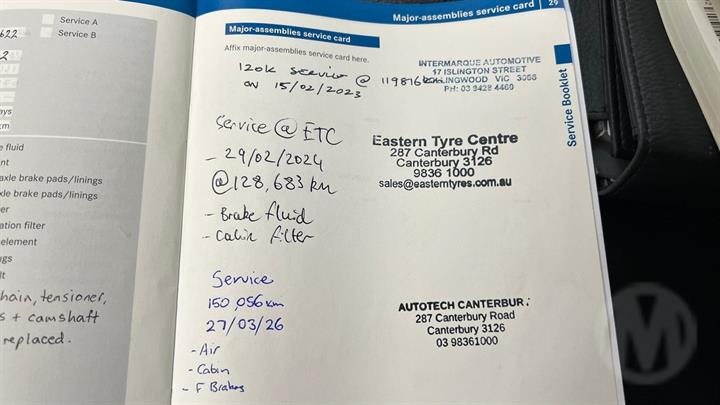 Service A
Service B
622
2
ays
km
e fluid
nt
axle brake pads/linings
xle brake pads/linings
er
ation filter
element
ugs
lt
hain, tensioner,
s + camshaft
replaced.
Major-assemblies service card 29
Major-assemblies service card
Affix major-assemblies service card here.
120k service @ 119876km
on 15/02/2023
INTERMARQUE AUTOMOTIVE
17 ISLINGTON STREET
COLLINGWOOD VIC 3066
PH: 03 9428 4460
Service Booklet
Service @ ETC
- 29/02/2024
@ 128,683 km
- Brake fluid
- Cabin filter
Eastern Tyre Centre
287 Canterbury Rd
Canterbury 3126
9836 1000
sales@easterntyres.com.au
Service
150,056km
27/03/26
- Air
- Cabin
- F Brakes
AUTOTECH CANTERBUR
287 Canterbury Road
Canterbury 3126
03 98361000
M